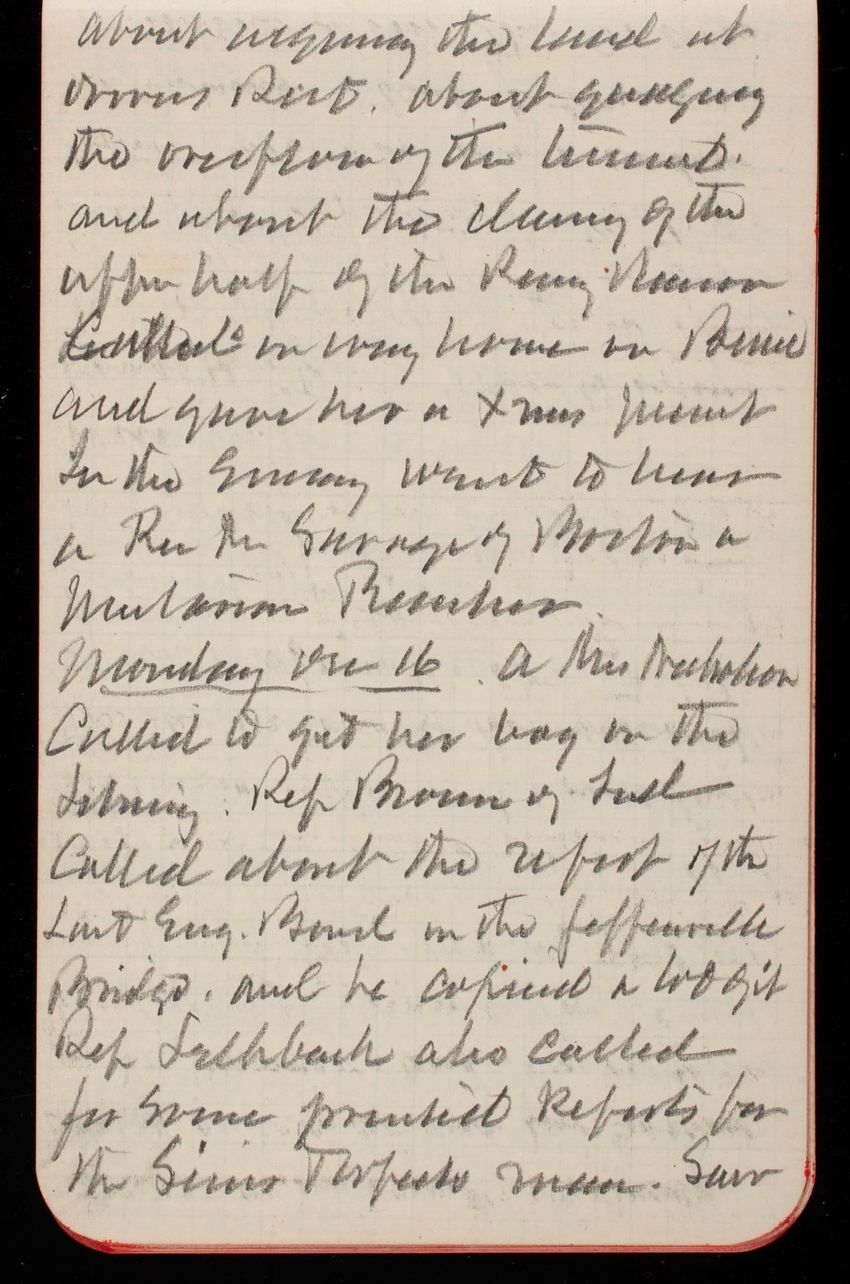 about acquiring the land at
Drovers Rest. about guaging
the overflow of the tunnel.
and about the cleaning of the
upper half of the Rainy
Called on way home on Bessie
and gave her a Xmas present
In the evening went to hear
a Rev Mr Savage of Boston a
Unitarian Preacher.
Monday Dec 16. A Mrs Nicholson
Called to get her boy in the
Library. Rep Brown of Ind
Called about the report of the
Last Eng. Board on the Jeffersonville
Bridge. and he copied a lot of it
Rep also called
for some printed Reports for
the Sims Torpedo man. Saw